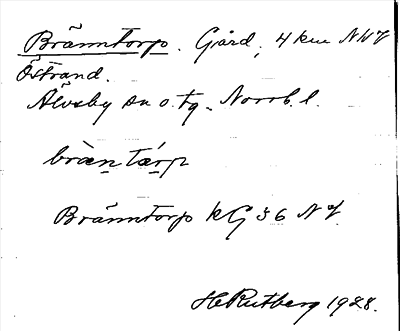 Bränntorp. Gård, 4 km NV
Östrand.
Älvsby sn o. tg. Norrb. l.
bràn tárp
Bränntorp KG 36 N
H Rutberg 1928.